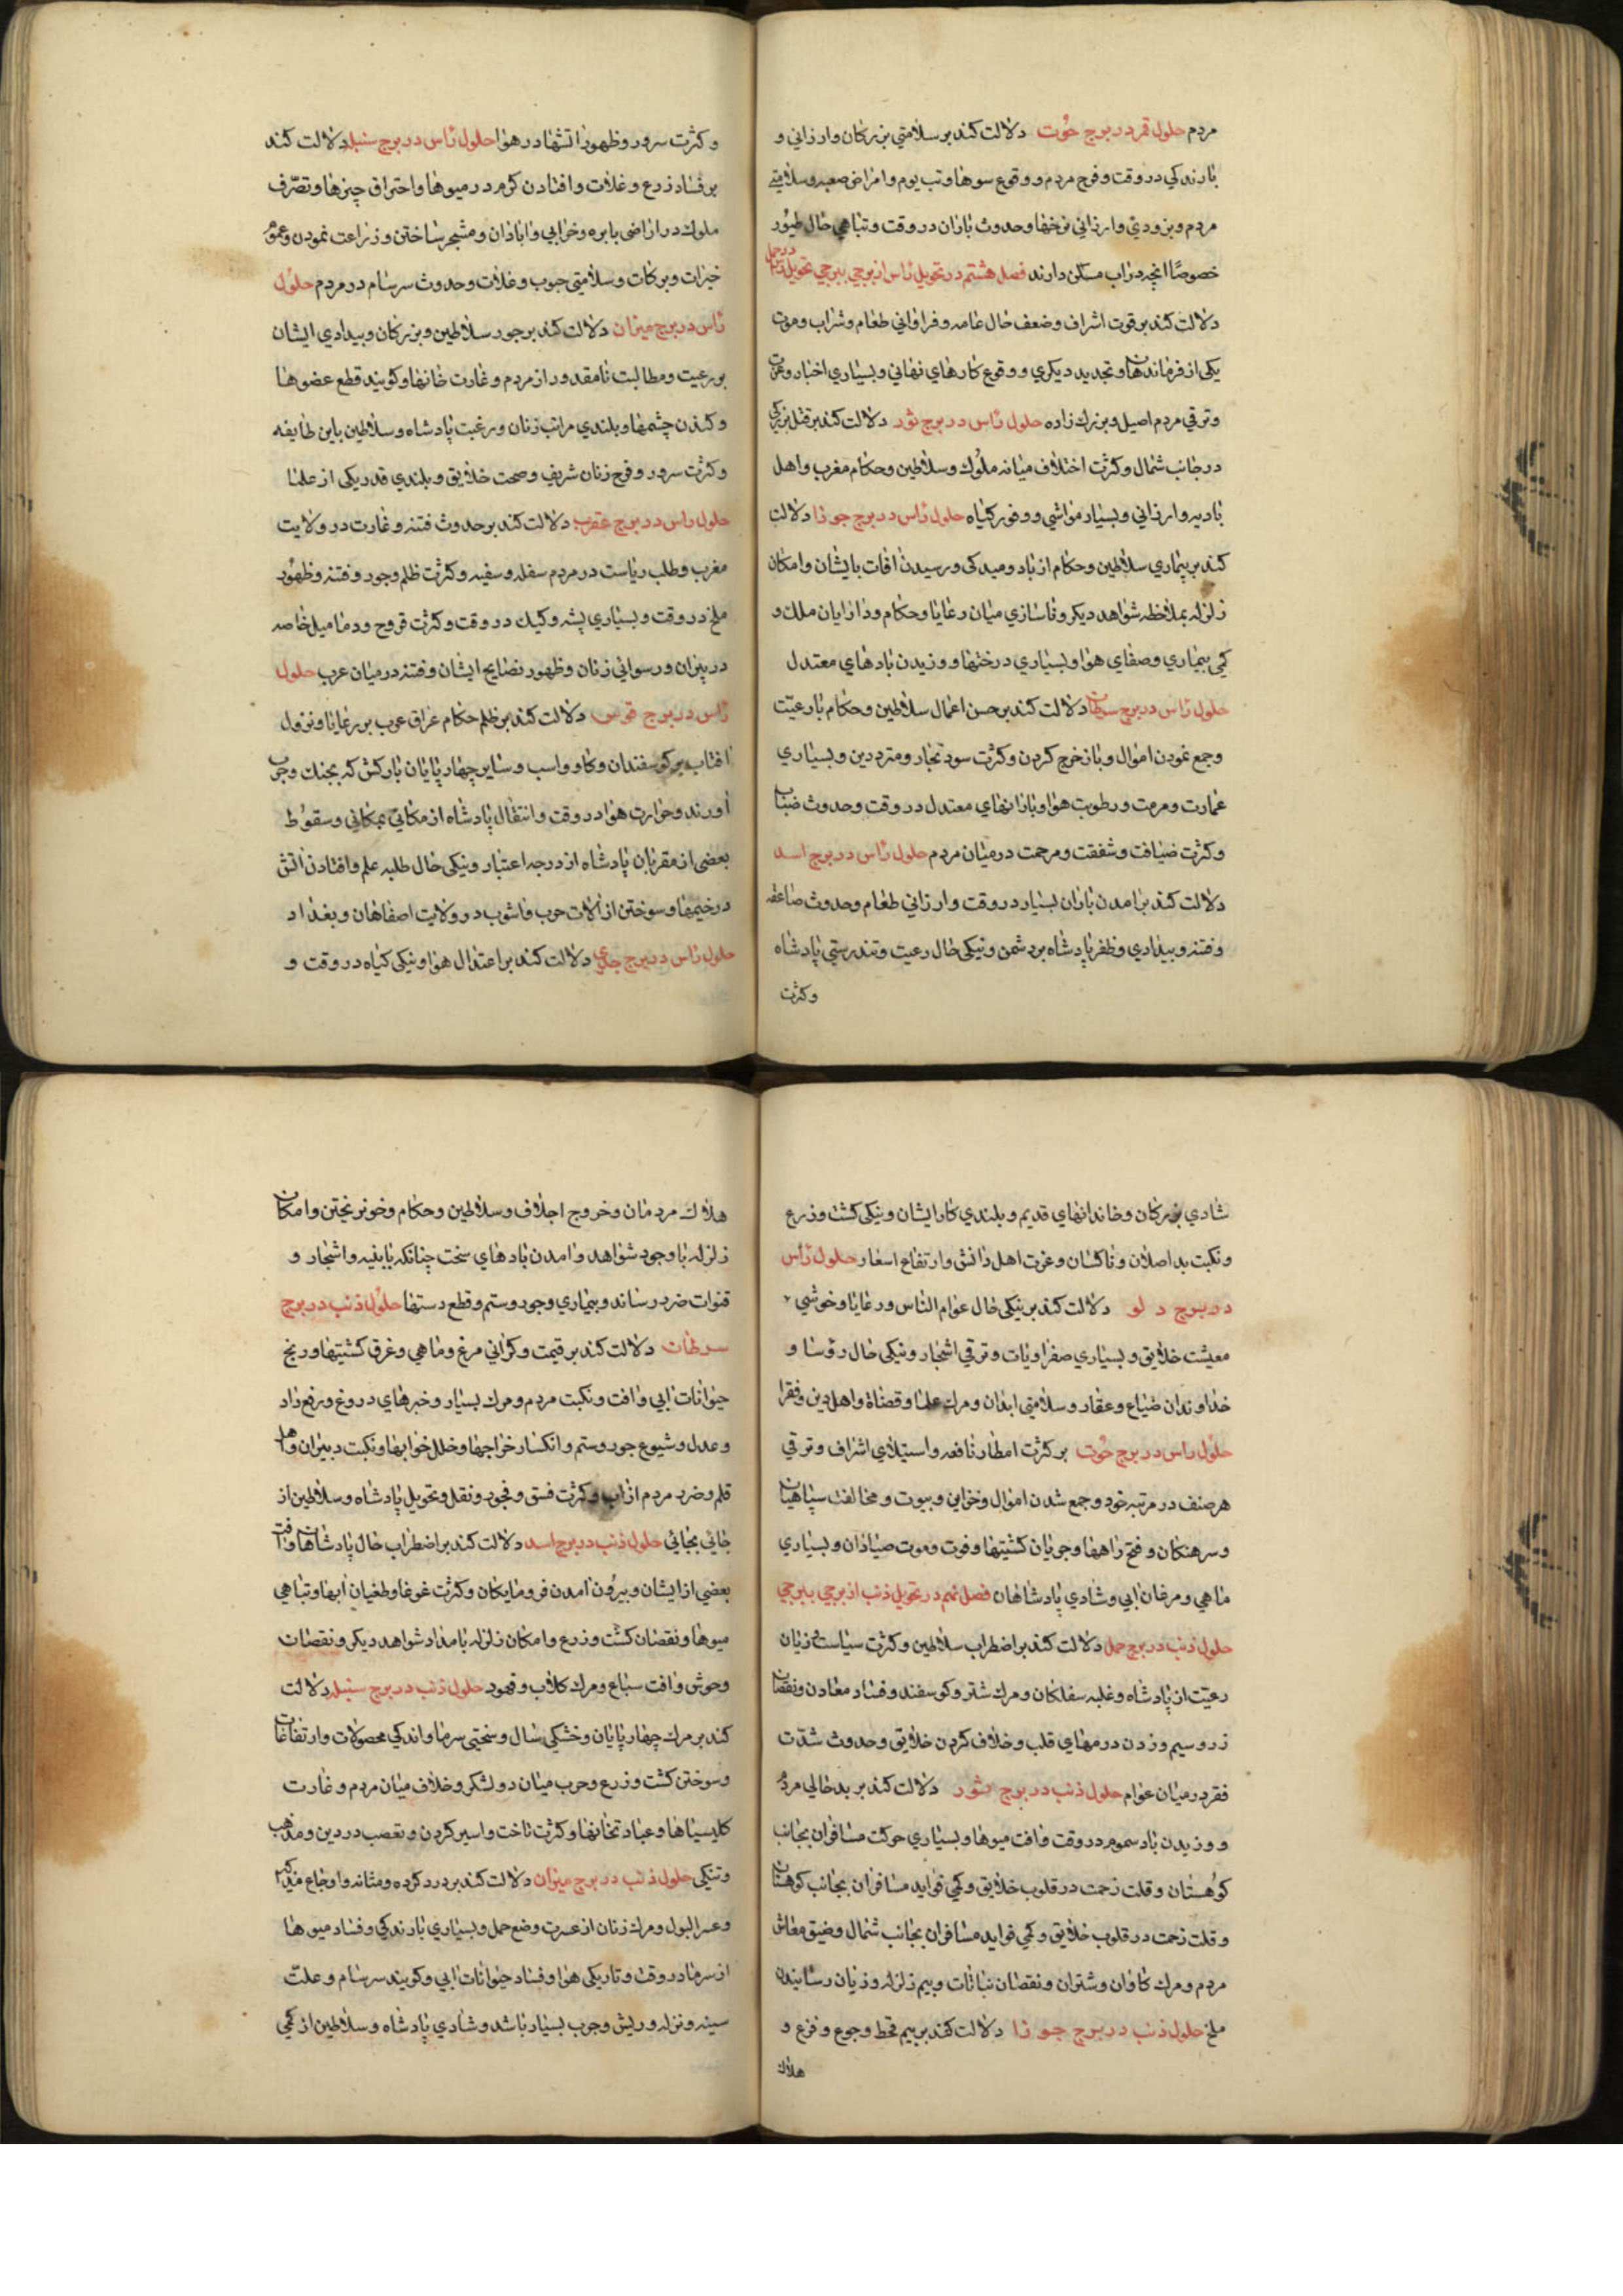 مردم حلول قمر در برج حوت دلالت کند بر سلامتی بزرکان وارزانی و
بارندکی در وقت وفرح مردم و وقوع سوها وتب یوم وامراض صعبه وسلامتی
مردم وبزودی وارزانی نرخها وحدوث باران در وقت وتباهی حال طیور
خصوصا انچه در اب مسکن دارند فصل هشتم در تحویل راس از برجی ببرجی تحویل راس در حمل
دلالت کند بر قوت اشراف وضعف حال عامه وفراوانی طعام وشراب وموت
یکی از فرماندهان وتجدید دیکری و وقوع کارهای نهانی وبسیاری اخبار وعزت
وترقی مردم اصیل وبزرك زاده حلول راس در برج ثور دلالت کند بر قتل بزرکی
در جانب شمال وکثرت اختلاف میانه ملوك وسلاطین وحکام مغرب واهل
بادیه وارزانی وبسیار مواشی ووفور کیاه حلول راس در برج جوزا دلالت
کند بر بیماری سلاطین وحکام از باد ومیدکی ورسیدن افات بایشان وامکان
زلزله بملاحظه شواهد دیکر وناسازی میان رعایا وحکام ودارایان ملك و
کمی بیماری وصفای هوا وبسیاری درختها ووزیدن بادهای معتدل
حلول راس در برج سرطان دلالت کند بر حسن اعمال سلاطین وحکام با رعیت
وجمع نمودن اموال وباز خرج کردن وکثرت سود تجار ومترددین وبسیاری
عمارت ومرمت ورطوبت هوا وبارانهای معتدل در وقت وحدوث ضباب
وکثرت ضیافت وشفقت ومرحمت در میان مردم حلول راس در برج اسد
دلالت کند بر امدن باران بسیار در وقت وارزانی طعام وحدوث صاعقه
وفتنه وبیداری وظفر پادشاه بر دشمن ونیکی حال رعیت وتندرستی پادشاه
وکثرت
وکثرت سرور وظهور اتشها در هوا حلول راس در برج سنبله دلالت کند
بر فساد زرع وغلات وافتادن کرم در میوها واحتراق چیزها وتصرف
ملوك در اراضی بایره وخرابی واباذان ومشجر ساختن وزراعت نمودن وعموم
خیرات وبرکات وسلامتی حبوب وغلات وحدوث سرسام در مردم حلول
راس در برج میزان دلالت کند بر جور سلاطین وبزرکان وبیدادی ایشان
بر رعیت ومطالبت نامقدور از مردم وغارت خانها وکویند قطع عضوها
وکندن چشمها وبلندی مراتب زنان ورغبت پادشاه وسلاطین باین طایفه
وکثرت سرور وفرح زنان شریف وصحت خلایق وبلندی قدر یکی از علما
حلول راس در برج عقرب دلالت کند بر حدوث فتنه وغارت در ولایت
مغرب وطلب ریاست در مردم سفله وسفیه وکثرت ظلم وجور وفتنه وظهور
ملخ در وقت وبسیاری پشه وکیك در وقت وکثرت قروح ودمامیل خاصه
در پیران ورسوائی زنان وظهور نصایح ایشان وفتنه در میان عرب حلول
راس در برج قوس دلالت کند بر ظلم حکام عراق عرب بر رعایا ونزول
افتاب بر کوسفندان وکاو واسب وسایر چهارپایان بارکش که بجنك وحرب
اورند وحرارت هوا در وقت وانتقال پادشاه از مکانی بمکانی وسقوط
بعضی از مقربان پادشاه از درجه اعتبار ونیکی حال طلبه علم وافتادن اتش
در خیمها وسوختن از الات حرب واشوب در ولایت اصفاهان وبغداد
حلول راس در برج جدی دلالت کند بر اعتدال هوا ونیکی کیاه در وقت و
شادی بزرکان وخاندانهای قدیم وبلندی کار ایشان ونیکی کشت وزرع
ونکبت بد اصلان وناکسان وعزت اهل دانش وارتفاع اسعار حلول راس
در برج دلو دلالت کند بر نیکی حال عوام الناس ورعایا وخوشی
معیشت خلایق وبسیاری صفراویات وترقی اشجار ونیکی حال رؤسا و
خداوندان ضیاع وعقار وسلامتی ابدان ومرك علما وقضاة واهل دین وفقرا
حلول راس در برج حوت بر کثرت امطار نافعه واستیلای اشراف وترقی
هر صنف در مرتبه خود وجمع شدن اموال وخزاین وبیوت ومخالفت سپاهیان
وسرهنکان وفتح راهها وجریان کشتیها وفوت وموت صیادان وبسیاری
ماهی ومرغان ابی وشادی پادشاهان فصل نهم در تحویل ذنب از برجی ببرجی
حلول ذنب در برج حمل دلالت کند بر اضطراب سلاطین وکثرت سیاست وزیان
رعیت از پادشاه وغلبه سفلکان ومرك شتر وکوسفند وفساد معادن ونقصان
زر وسیم وزدن درمهای قلب وخلاف کردن خلایق وحدوث شدت
فقر در میان عوام حلول ذنب در برج ثور دلالت کند بر بد حالی مردم
ووزیدن باد سموم در وقت وافت میوها وبسیاری حرکت مسافران بجانب
کوهستان وقلت زحمت در قلوب خلایق وکمی فواید مسافران بجانب کوهستان
وقلت زحمت در قلوب خلایق وکمی فواید مسافران بجانب شمال وضیق معاش
مردم ومرك کاوان وشتران ونقصان نباتات وبیم زلزله وزیان رسانیدن
ملخ حلول ذنب در برج جوزا دلالت کند بر بیم قحط وجوع وفزع و
هلاك
هلاك مردمان وخروج اجلاف وسلاطین وحکام وخونریختن وامکان
زلزله با وجود شواهد وامدن بادهای سخت چنانکه بابنیه واشجار و
قنوات ضرر رساند وبیماری وجور وستم وقطع دستها حلول ذنب در برج
سرطان دلالت کند بر قیمت وکرانی مرغ وماهی وغرق کشتیها ورنج
حیوانات ابی وافت ونکبت مردم ومرك بسیار وخبرهای دروغ ورفع داد
وعدل وشیوع جور وستم وانکسار خراجها وخلل خوابها ونکبت دبیران واهل
قلم وضرر مردم از اب وکثرت فسق وفجور ونقل وتحویل پادشاه وسلاطین از
جائی بجائی حلول ذنب در برج اسد دلالت کند بر اضطراب حال پادشاهان وافت
بعضی از ایشان وبیرون امدن فرومایکان وکثرت غوغا وطغیان ابها وتباهی
میوها ونقصان کشت وزرع وامکان زلزله بامداد شواهد دیکر ونقصان
وحوش وافت سباع ومرك کلاب وفهود حلول ذنب در برج سنبله دلالت
کند بر مرك چهارپایان وخشکی سال وسختی سرما واندکی محصولات وارتفاعات
وسوختن کشت وزرع وحرب میان دو لشکر وخلاف میان مردم وغارت
کلیسیاها وعبادتخانها وکثرت تاخت واسیر کردن وتعصب در دین ومذهب
وتنکی حلول ذنب در برج میزان دلالت کند بر درد کرده ومثانه واوجاع
وعسر البول ومرك زنان از عسرت وضع حمل وبسیاری بارندکی وفساد میوها
از سرما در وقت وتاریکی هوا وفساد حیوانات ابی وکویند سرسام وعلت
سینه ونزله وریش وجرب بسیار باشد وشادی پادشاه وسلاطین از کمی